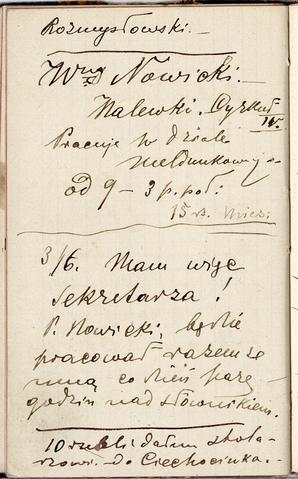 Rozmysłowski. —
Wny Nowicki. —
Nalewki. Cyrkuł
IV.
Pracuje w dziale
meldunkowym —
od 9 – 3 p. poł:
15 rs. mies:
3/6. Mam więc
sekretarza!
P. Nowicki, będzie
pracował razem ze
mną co dzień parę
godzin nad słownikiem.
10 rubli dałem
—do Ciechocinka. —